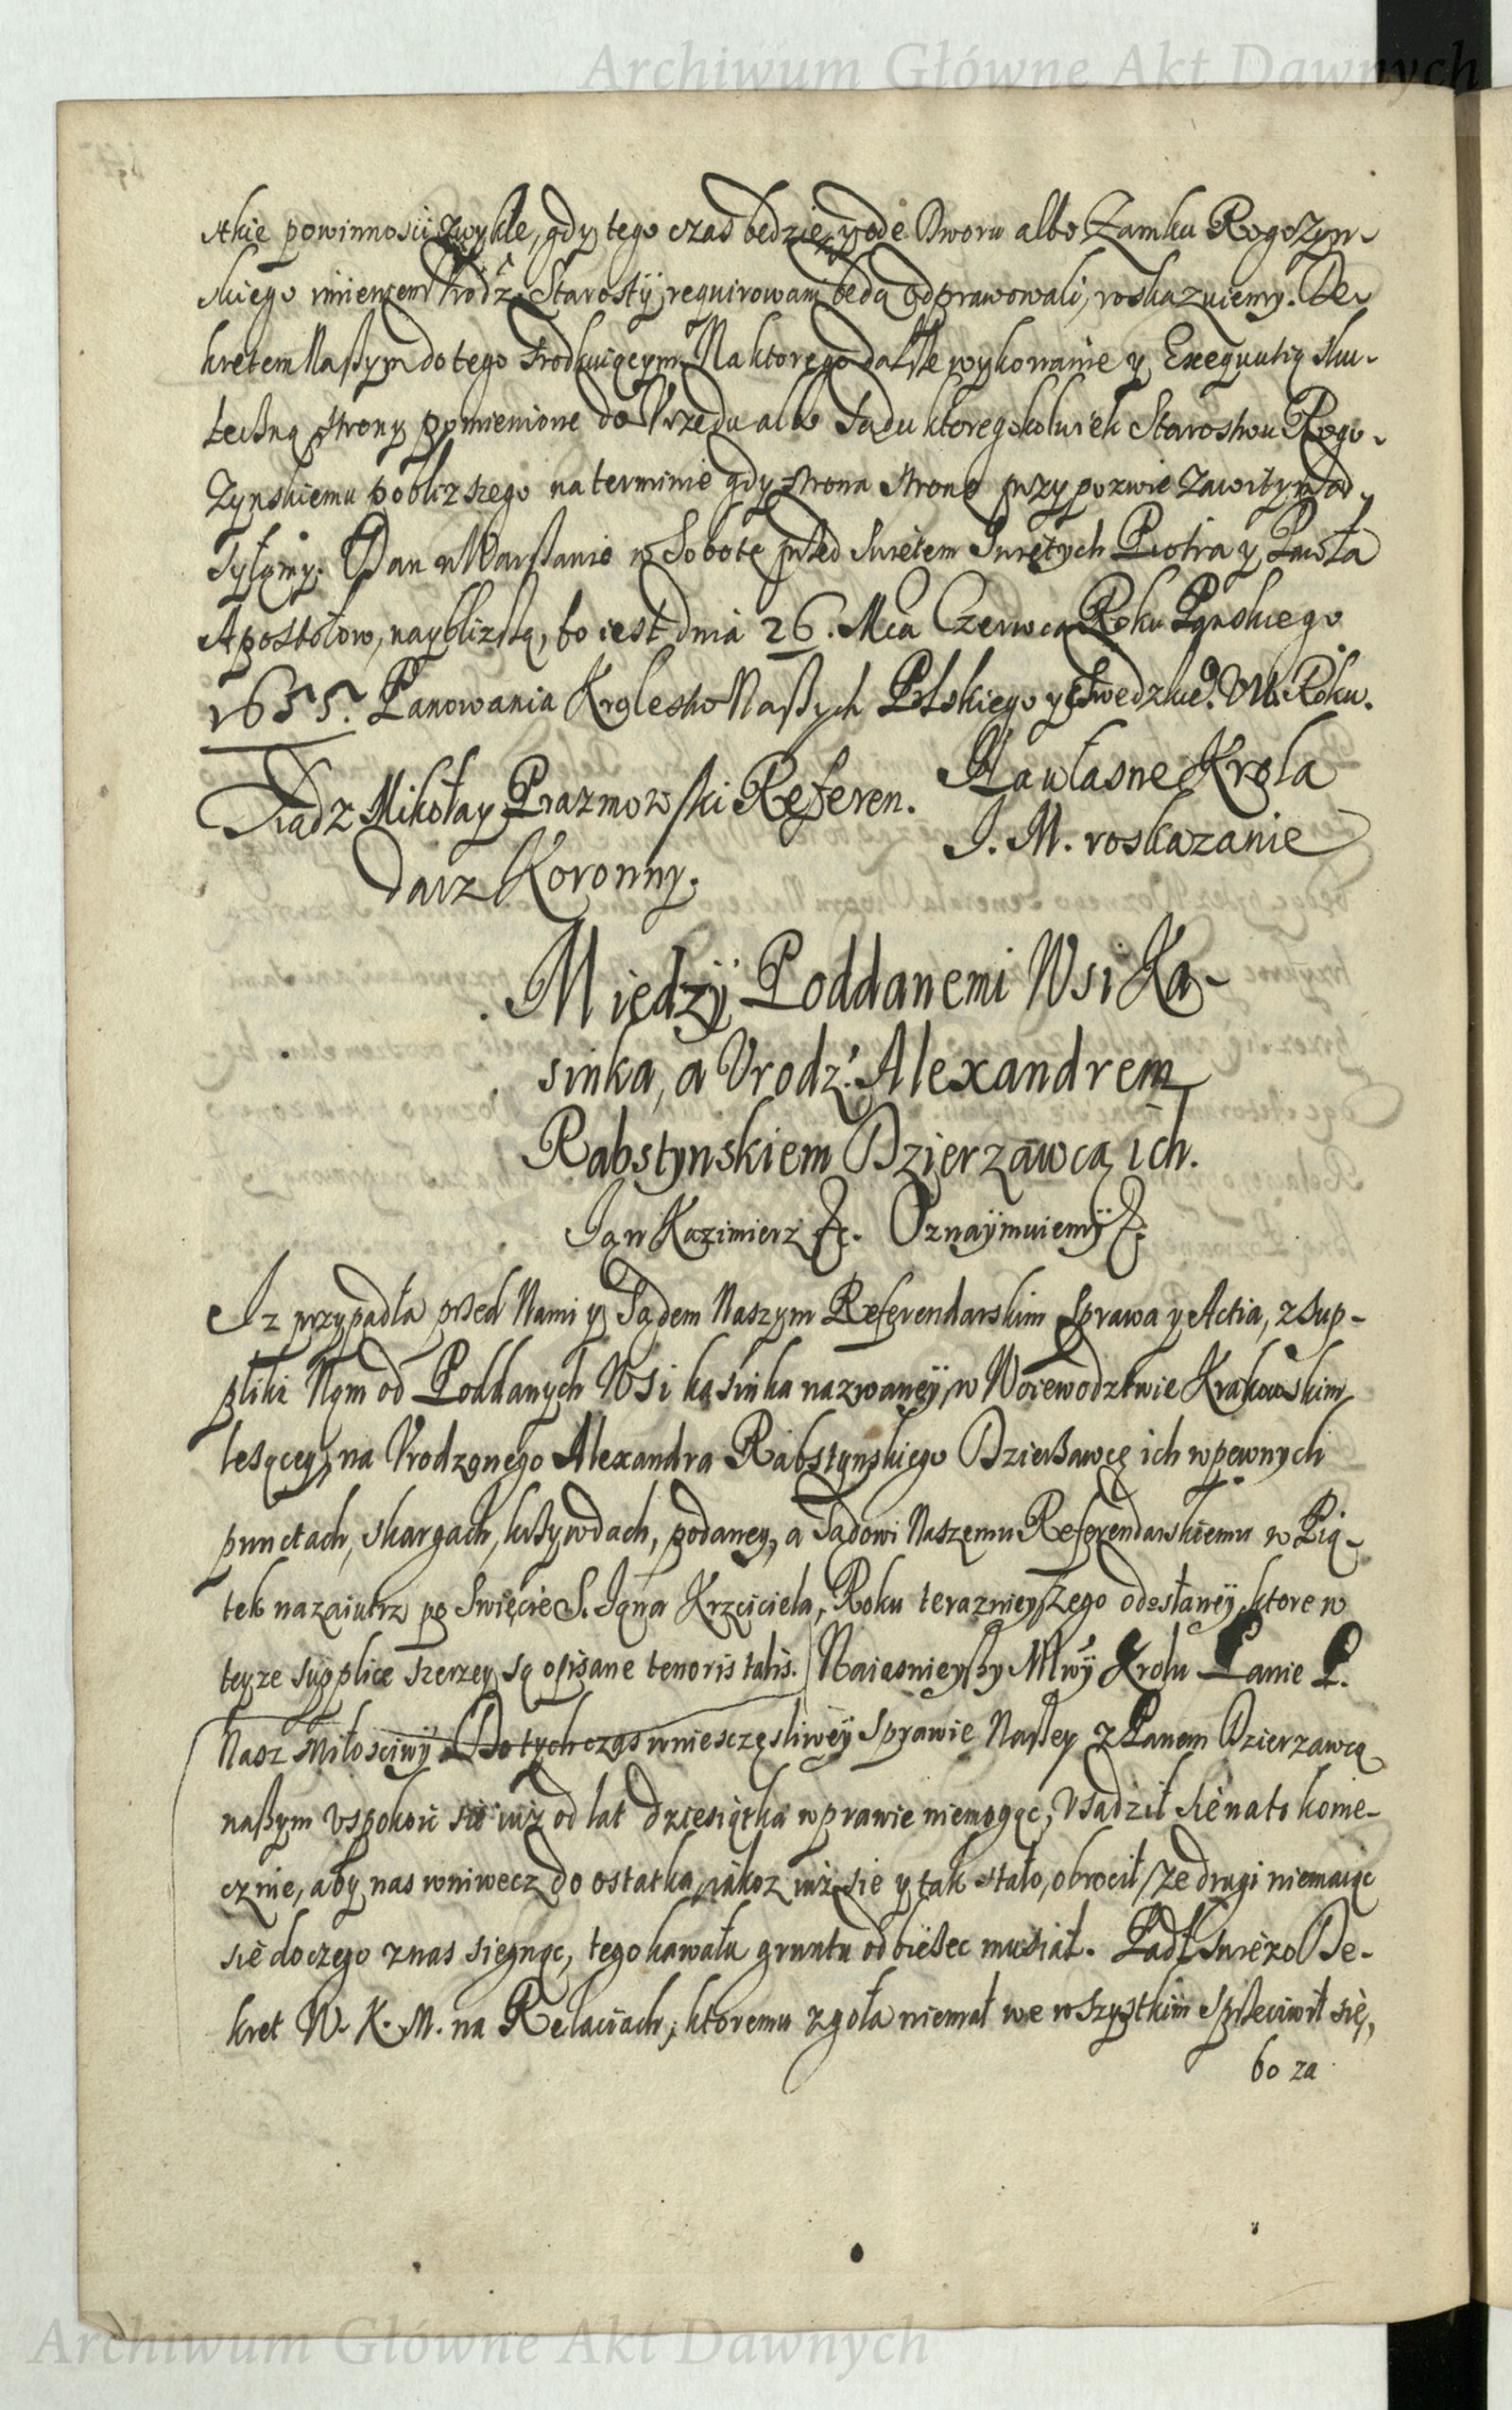 Archiwum Główne Akt Dawnych
stkie powinnosci zwykłe, gdy tego czas będzie, y ode Dworu albo Zamku Rogozyn-
skiego imieniem Vrodz: Starosty requirowani będą odprawowali, roskazuiemy. De-
kretem Naszym do tego srodkuiącym. Na ktorego dalsze wykonanie y Exequutią sku-
teczną strony pomienione do Vrzędu albo Sądu ktoregokolwiek Starostwu Rogo-
zynskiemu pobliszego na terminie gdy strona stronę przy pozwie zawitym od-
syłamy. Dan w Warszawie w Sobotę przed Swiętem Swiętych Piotra y Pawła
Apostołow, naybliszą, to iest dnia 26. Mca Czerwca Roku Pańskiego
1655. Panowania Krolestw Naszych Polskiego y Szwedzkieo VII. Roku.
Xiądz Mikołay Prazmowski Referen.
darz Koronny.
Na własne Krola
J. M. roskazanie
Między Poddanemi Wsi Ka-
sinka, a Vrodz: Alexandrem
Rabstynskiem Dzierzawcą ich.
Jan Kazimierz &c. Oznaymuiemy &c.
Iz przypadła przed Nami y Sądem Naszym Referendarskim Sprawa y Actia, z sup-
pliki Nam od Poddanych Wsi kasinka nazwaney, w Woiewodztwie Krakowskim
leżącey, na Vrodzonego Alexandra Rabstynskiego Dzierżawcę ich w pewnych
punctach, skargach, krzywdach, podaney, a Sądowi Naszemu Referendarskiemu w Pią-
tek nazaiutrz po Swięcie S. Jana Krzciciela, Roku terazniejszego odesłaney, ktore w
teyze supplice szerzey są opisane tenoris talis. Naiasnieyszy Młwy Krolu Panie P.
Nasz Miłosciwy Do tych czas w niesczęsliwey sprawie Naszey z Panem Dzierzawcą
naszym vspokoic się iuż od lat dziesiątka w prawie niemogąc, Vsadził się na to konie-
cznie, aby nas wniwecz do ostatka, iakoz iuż się y tak stało, obrocił, ze drugi niemaiąc
się do czego z nas sięgnąc, tego kawału gruntu odbieżec musiał. Padł swiezo De-
kret W. K. M. na Relaciach, ktoremu zgoła niemal we wszystkim sprzeciwił się,
bo za
Archiwum Główne Akt Dawnych